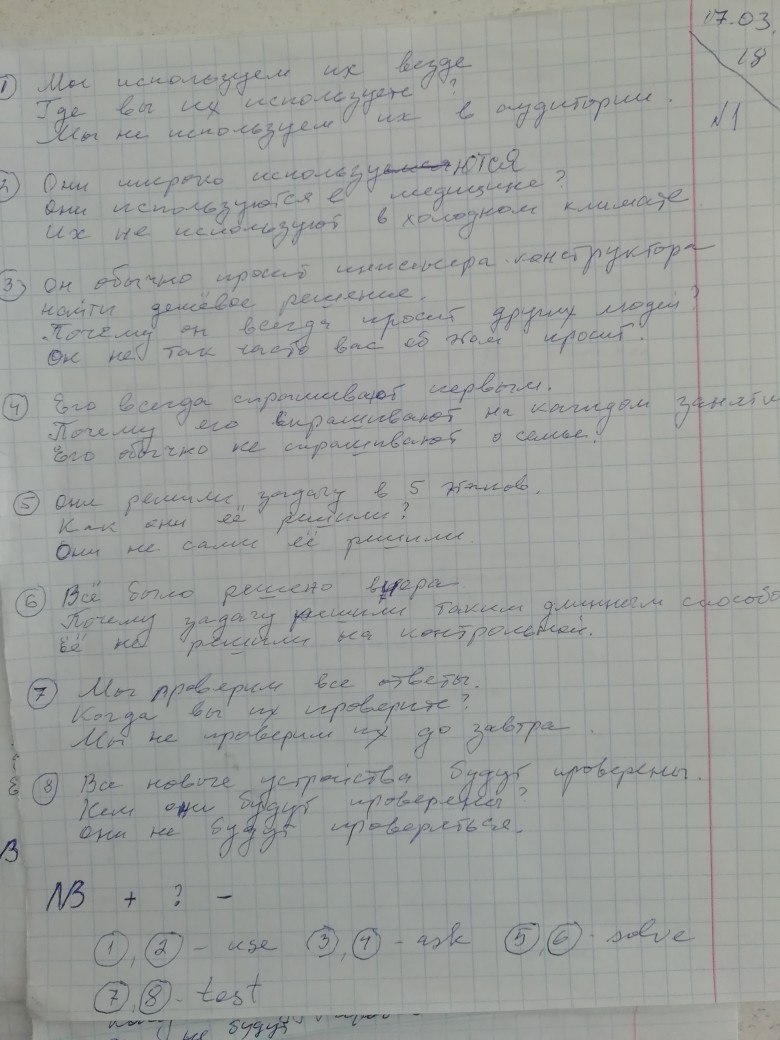 17.03.
18
№1
1 Мы используем их везде
Где вы их используете?
Мы не используем их в аудитории.
2 Они широко используются
Они используются в медицине?
Их не используют в холодном климате.
3 Он обычно просит инженера-конструктора
найти дешёвое решение.
Почему он всегда просит других людей?
Он не так часто вас об этом просит.
4 Его всегда спрашивают первым.
Почему его спрашивают на каждом заняти
Его обычно не спрашивают о семье.
5 Они решили задачу в 5 этапов.
Как они её решили?
Они не сами её решили.
6 Всё было решено вчера.
Почему задачу решили таким длинным способо
Её не решили на контрольной.
7 Мы проверим все ответы.
Когда вы их проверите?
Мы не проверим их до завтра.
8 Все новые устройства будут проверены.
Кем они будут проверены?
Они не будут проверяться.
В
NB + ? -
1, 2 - use 3, 4 - ask 5, 6 - solve
7, 8 - test
не будут